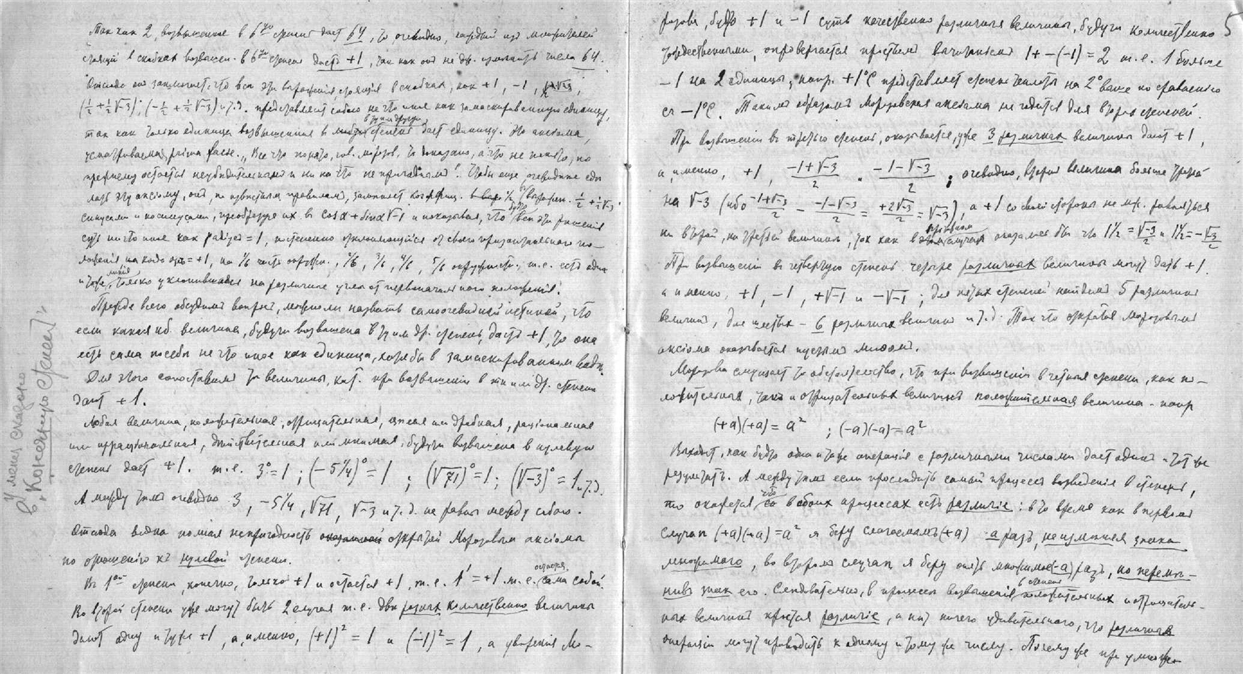 Так как 2, возвышенное в 6ую степень дает 64, то очевидно, каждый из множителей
стоящий в скобках возвышен. в 6ую степень даст +1, так как они не др. множит. числа 64.
что все эти выражения стоящие в скобках, как +1, -1,
(½+½√-3), (-½+½√-3) и т.д. представляет собою не что иное как замаскированную единицу,
так как только единица возвышенная в степени дает единицу. Но аксиома,
prima facie. „Все что понято, гов. Морозов, то доказано, а что не понято, по
прежнему остается неубедительным и ни на что не пригодным". Чтобы еще очевиднее сде-
лать эту аксиому, он, по известным правилам, заменяет ½ + ½√-3
синусами и косинусами, преобразуя их в cosα + sinα√-1 и показывая, что все эти решения
суть ни что иное как радиус = 1, от своего горизонтального по-
ложения на =+1, на 1/6 часть окружн., 2/6, 3/6, 4/6, 5/6 окружности, т.е. есть одна
и та же, только уклонившаяся на различные углы от первоначального положения!
Прежде всего обсудим вопрос, можем ли назвать самоочевидной истиной, что
если какая нб. величина, будучи возвышена в ту или др. степень, даст +1, то она
есть сама по себе не что иное как единица, хотя бы в замаскированном виде.
Для этого сопоставим те величины, кот. при возвышении в ту или др. степень
дают +1.
Любая величина, положительная, отрицательная, целая или дробная, рациональная
или иррациональная, действительная или мнимая, будучи возвышена в нулевую
степень дает +1. т.е. 3⁰=1; (-5¼)⁰=1; (√71)⁰=1; (√-3)⁰=1 и т.д.
А между тем очевидно 3, -5¼, √71, √-3 и т.д. не равны между собою.
Отсюда видна полная непригодность открытой Морозовым аксиомы
по отношению к нулевой степени.
В 1ой степени конечно, только +1 и остается +1, т.е. 1¹=+1 т.е. сама собой
Во второй степени уже могут быть 2 случая т.е. две разных количественно величины
дают одну и ту же +1, а, именно, (+1)²=1 и (-1)²=1, а уверения Мо-
У меня сказано
в „Кажд степ"
5
розова, будто +1 и -1 суть качественно различные величины, будучи количественно
тождественными, опровергается простым вычитанием 1+-(-1)=2 т.е. 1 больше
-1 на 2 единицы, напр. +1°C представляет степень теплоты на 2° выше по сравнению
со -1°C. Таким образом Морозовская аксиома не годится для второй степени.
При возвышении в третью степень, оказывается, уже 3 различных величины дают +1,
а именно, +1, (-1+√-3)/2, (-1-√-3)/2; очевидно, вторая величина больше третьей
на √-3 (ибо (-1+√-3)/2 - (-1-√-3)/2 = +2√-3/2 = √-3), а +1 со своей стороны не мж. равняться
ни второй, ни третьей величине, так как в случае оказалось бы что 1½=√-3/2 и 1½=-√-3/2
При возвышении в четвертую степень четыре различных величины могут дать +1.
а именно, +1, -1, +√-1 и -√-1; для пятых степеней найдем 5 различных
величин, для шестых - 6 различных величин и т.д. Так что открытая Морозовым
аксиома оказывается пустым мифом.
Морозова смущает то обстоятельство, что при возвышении в четные степени, как по-
ложительная, так и отрицательная величины положительная величина - напр
(+a)(+a)=a² ; (-a)(-a)=a²
Выходит, как будто одна и та же операция с различными числами дает один и тот же
результат. А между тем если проследить самый процесс возведения в степень,
то окажется, что в обоих процессах есть различие: в то время как в первом
случае (+a)(+a)=a² я беру слагаемым (+a) a раз, не изменяя знака
множимого, во втором случае я беру опять множимое (-a) раз, но переме-
нив знак его. Следовательно, в процессе возвышения в степень положительных и отрицатель-
ных величин кроется различие, а нет ничего удивительного, что различные
операции могут приводить к одному и тому же числу. Почему же при умноже-